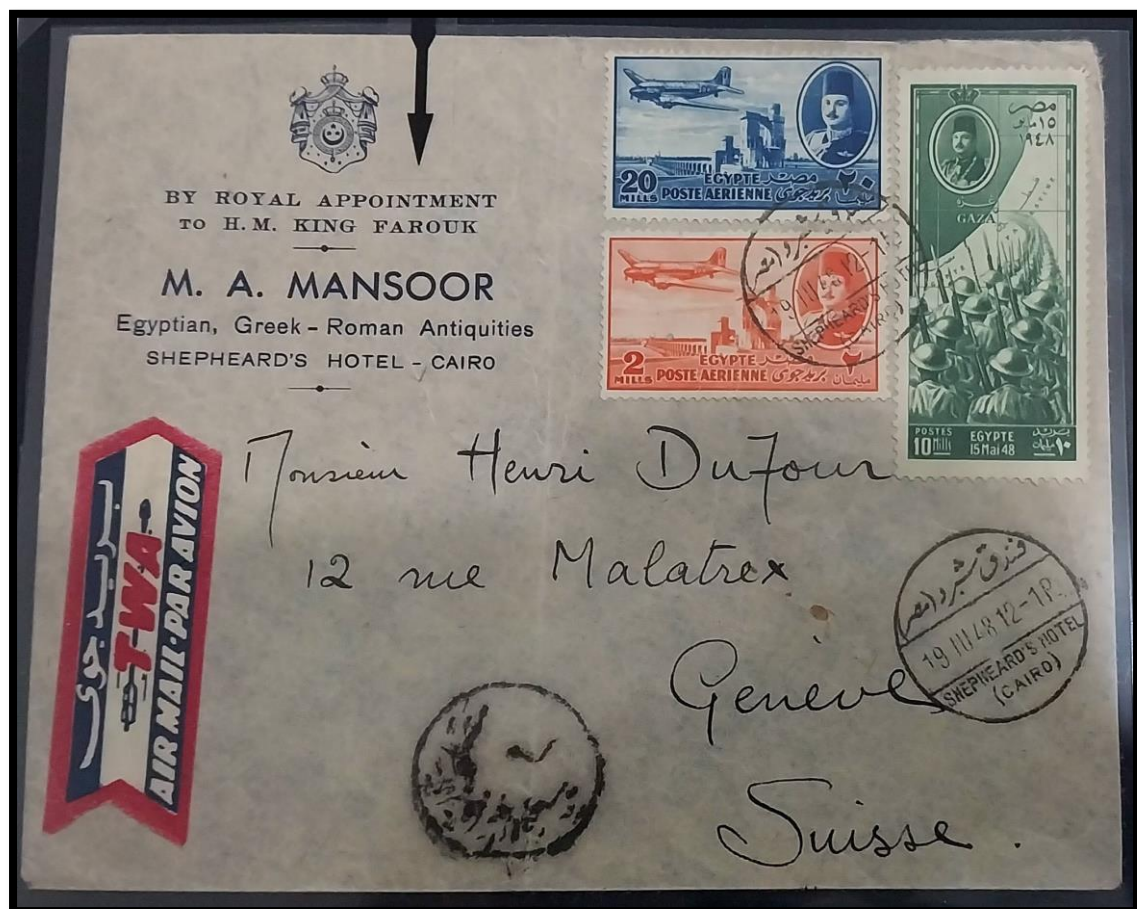 BY ROYAL APPOINTMENT
TO H.M. KING FAROUK
M. A. MANSOOR
Egyptian, Greek-Roman Antiquities
SHEPHEARD'S HOTEL - CAIRO
20 MILLS
EGYPTE مصر
POSTE AERIENNE بريد جوى
٢٠ مليمات
2 MILLS
EGYPTE مصر
POSTE AERIENNE بريد جوى
٢ مليمان
مصر
١٥ مايو
١٩٤٨
غزة
GAZA
POSTES
10 Mills
EGYPTE
15 Mai 48
بريد
١٠ مليمات
SHEPHEARD'S HOTEL
بريد جوى
TWA
AIR MAIL·PAR AVION
Monsieur Henri Dufour
12 rue Malatrex
Genève
Suisse.
فندق شبرد (مصر)
19 III 48 12-1P.
SHEPHEARD'S HOTEL
(CAIRO)